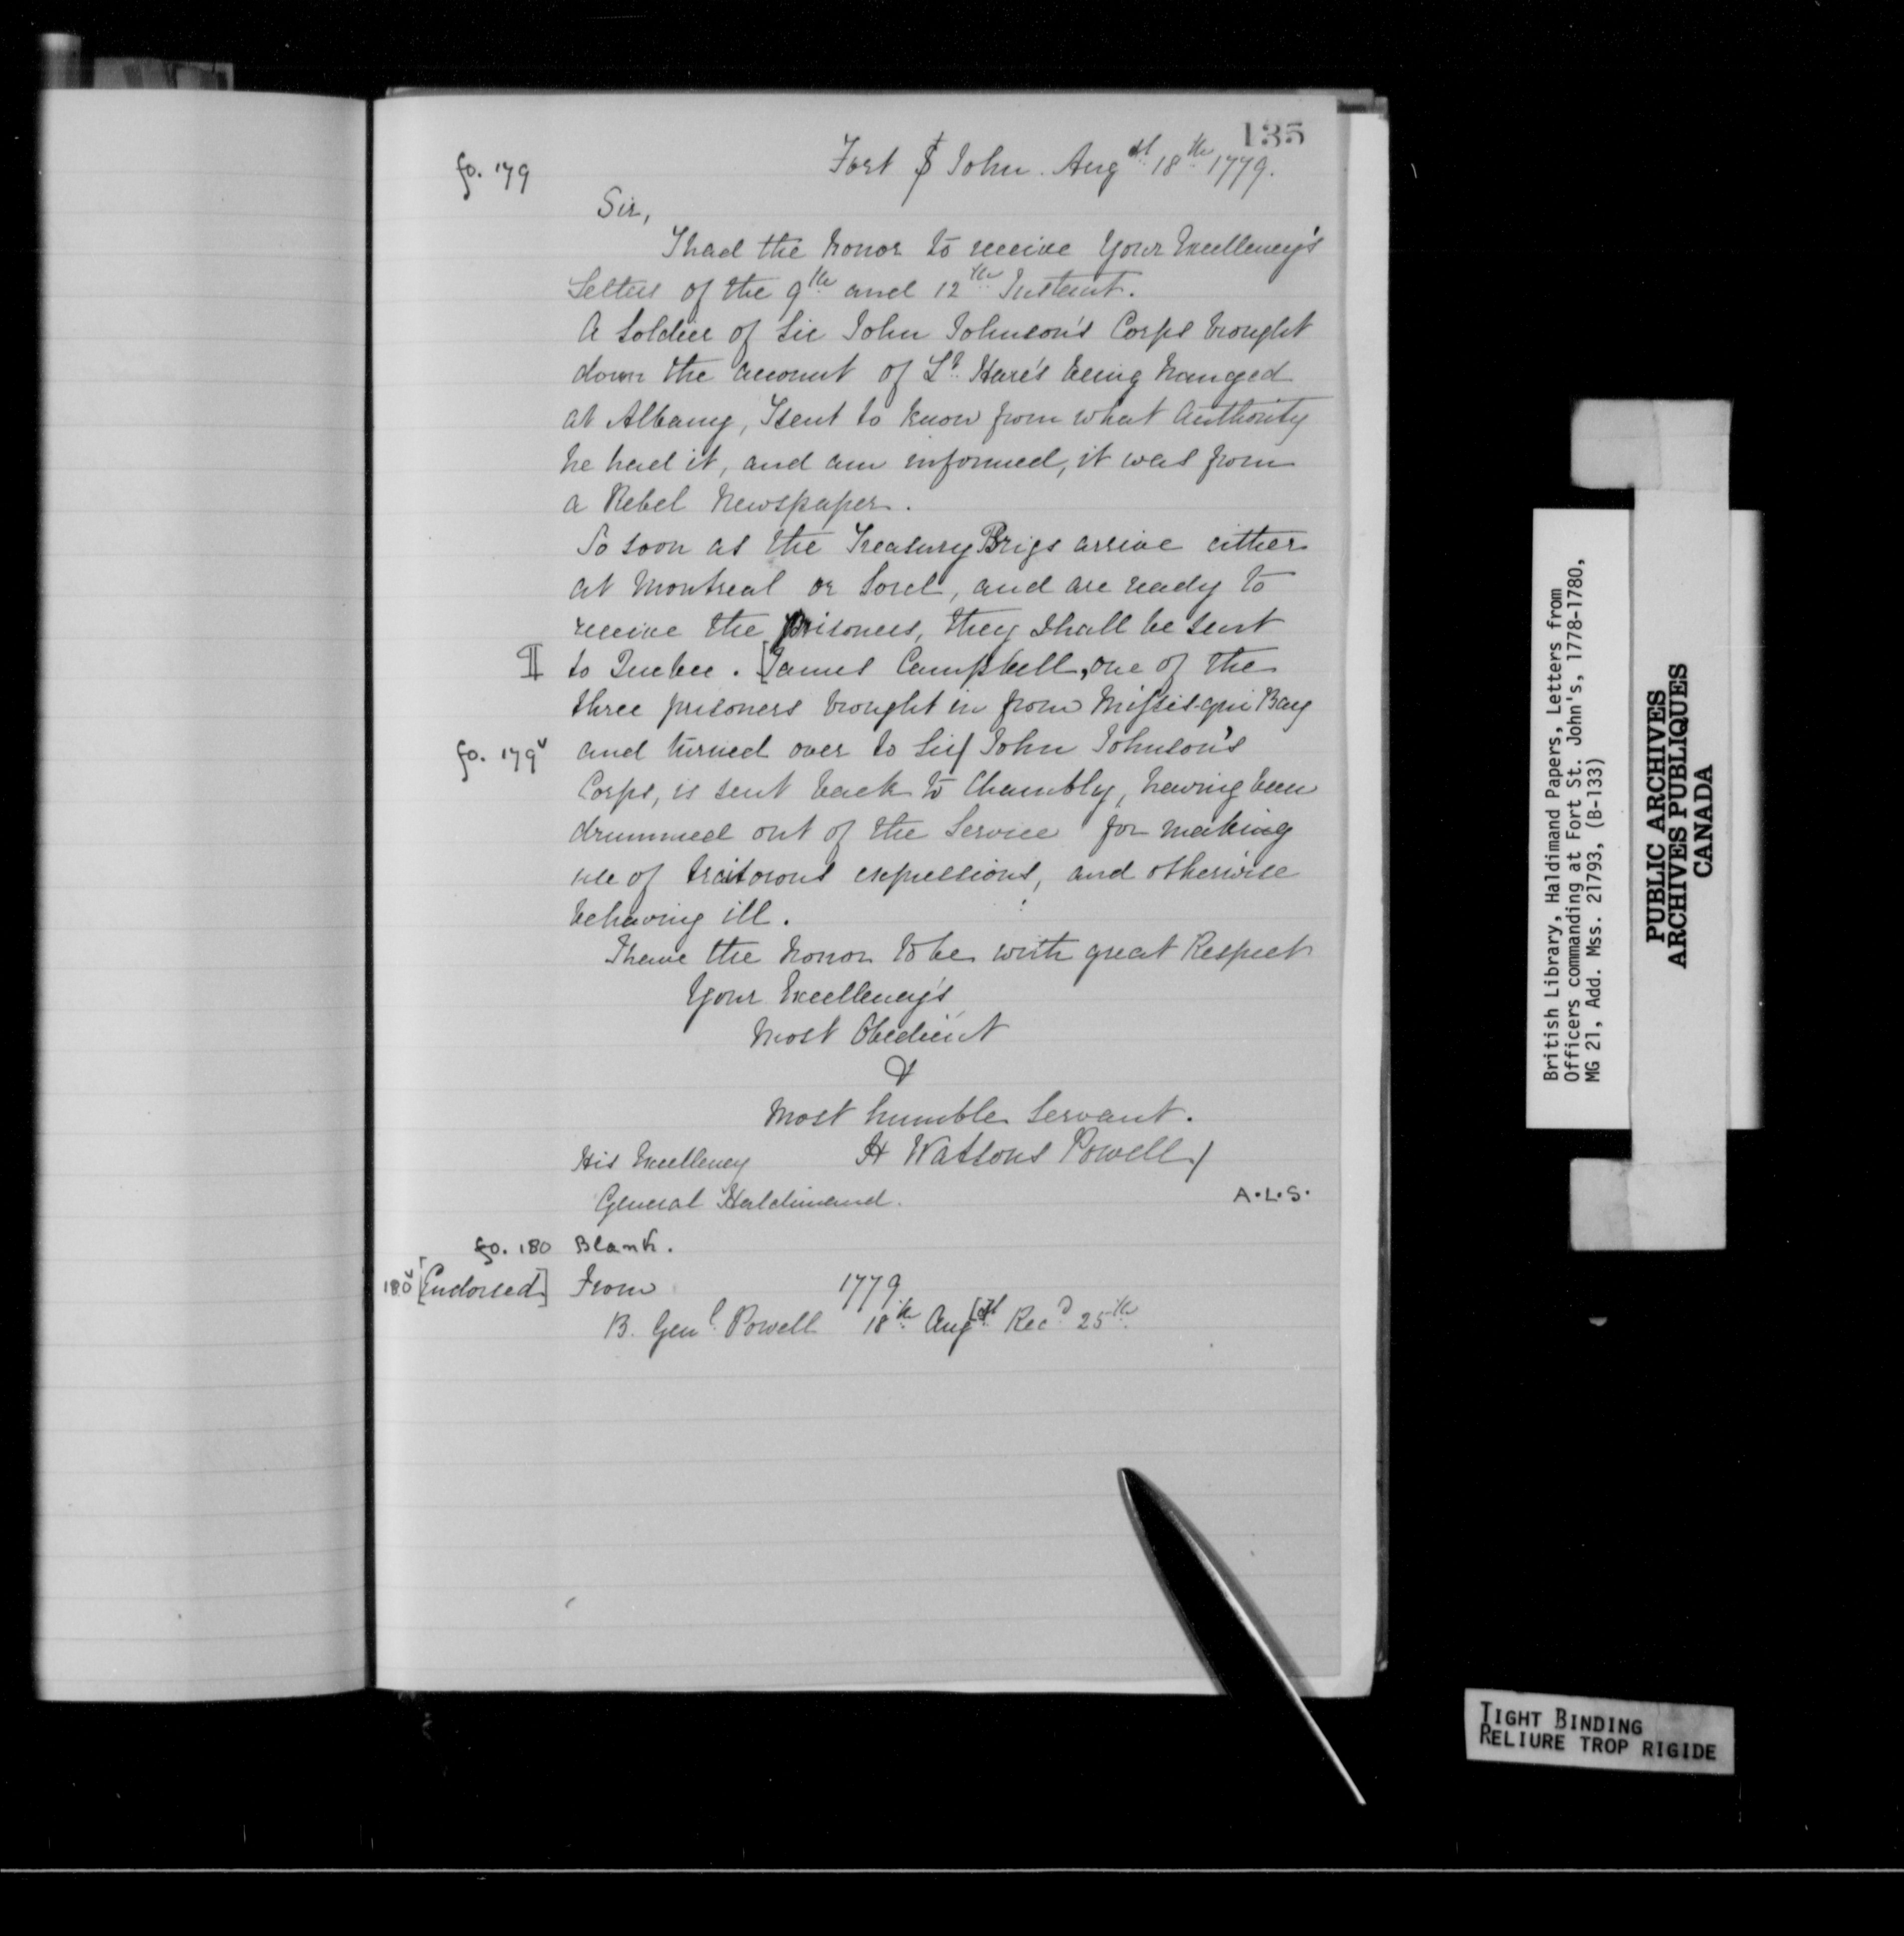 135
fo. 179
Fort St John. Augst 18th 1779.
Sir,
I had the honor to receive Your Excellency's
Letters of the 9th and 12th Instant.
A Soldier of Sir John Johnson's Corps brought
down the account of Lt. Hare's being hanged
at Albany, I sent to know from what Authority
he had it, and am informed, it was from
a Rebel Newspaper.
So soon as the Treasury Brigs arrive either
at Montreal or Sorel, and are ready to
receive the prisoners, they shall be sent
¶ to Quebec. [James Campbell, one of the
three prisoners brought in from Missis-qui Bay
fo. 179v and turned over to Sir John Johnson's
Corps, is sent back to Chambly, having been
drummed out of the Service for making
use of traitorous expressions, and otherwise
behaving ill.
I have the honor to be with great Respect
Your Excellency's
Most Obedient
&
Most humble Servant.
H Watsons Powell
His Excellency
General Haldimand.
A.L.S.
fo. 180 Blank.
180v [Endorsed] From 1779
B. Genl. Powell 18th Augst Recd 25th
British Library, Haldimand Papers, Letters from
Officers commanding at Fort St. John's, 1778-1780,
MG 21, Add. Mss. 21793, (B-133)
PUBLIC ARCHIVES
ARCHIVES PUBLIQUES
CANADA
TIGHT BINDING
RELIURE TROP RIGIDE